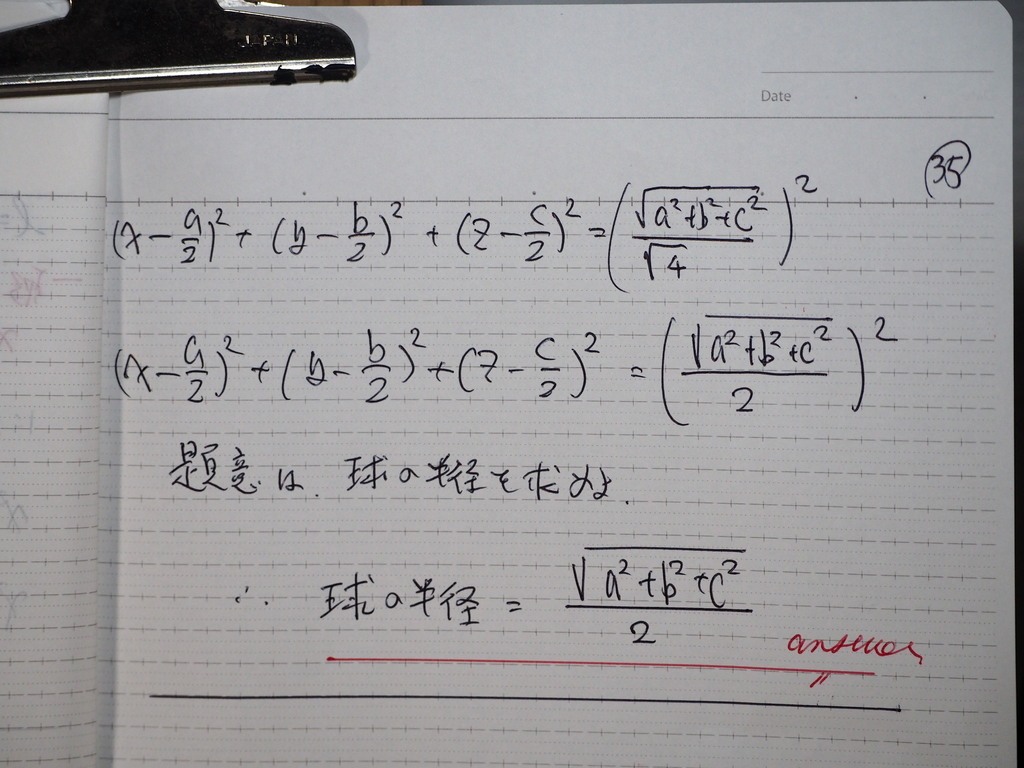 JAPAN
Date
35
(x - a/2)² + (y - b/2)² + (z - c/2)² = (√(a²+b²+c²)/√4)²
(x - a/2)² + (y - b/2)² + (z - c/2)² = (√(a²+b²+c²)/2)²
題意は、球の半径を求めよ.
∴ 球の半径 = √(a²+b²+c²)/2
answer